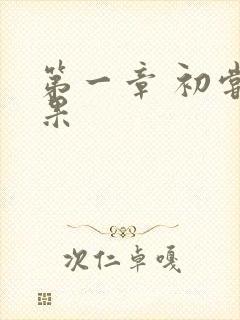 第一章 初尝
果
次仁卓嘎